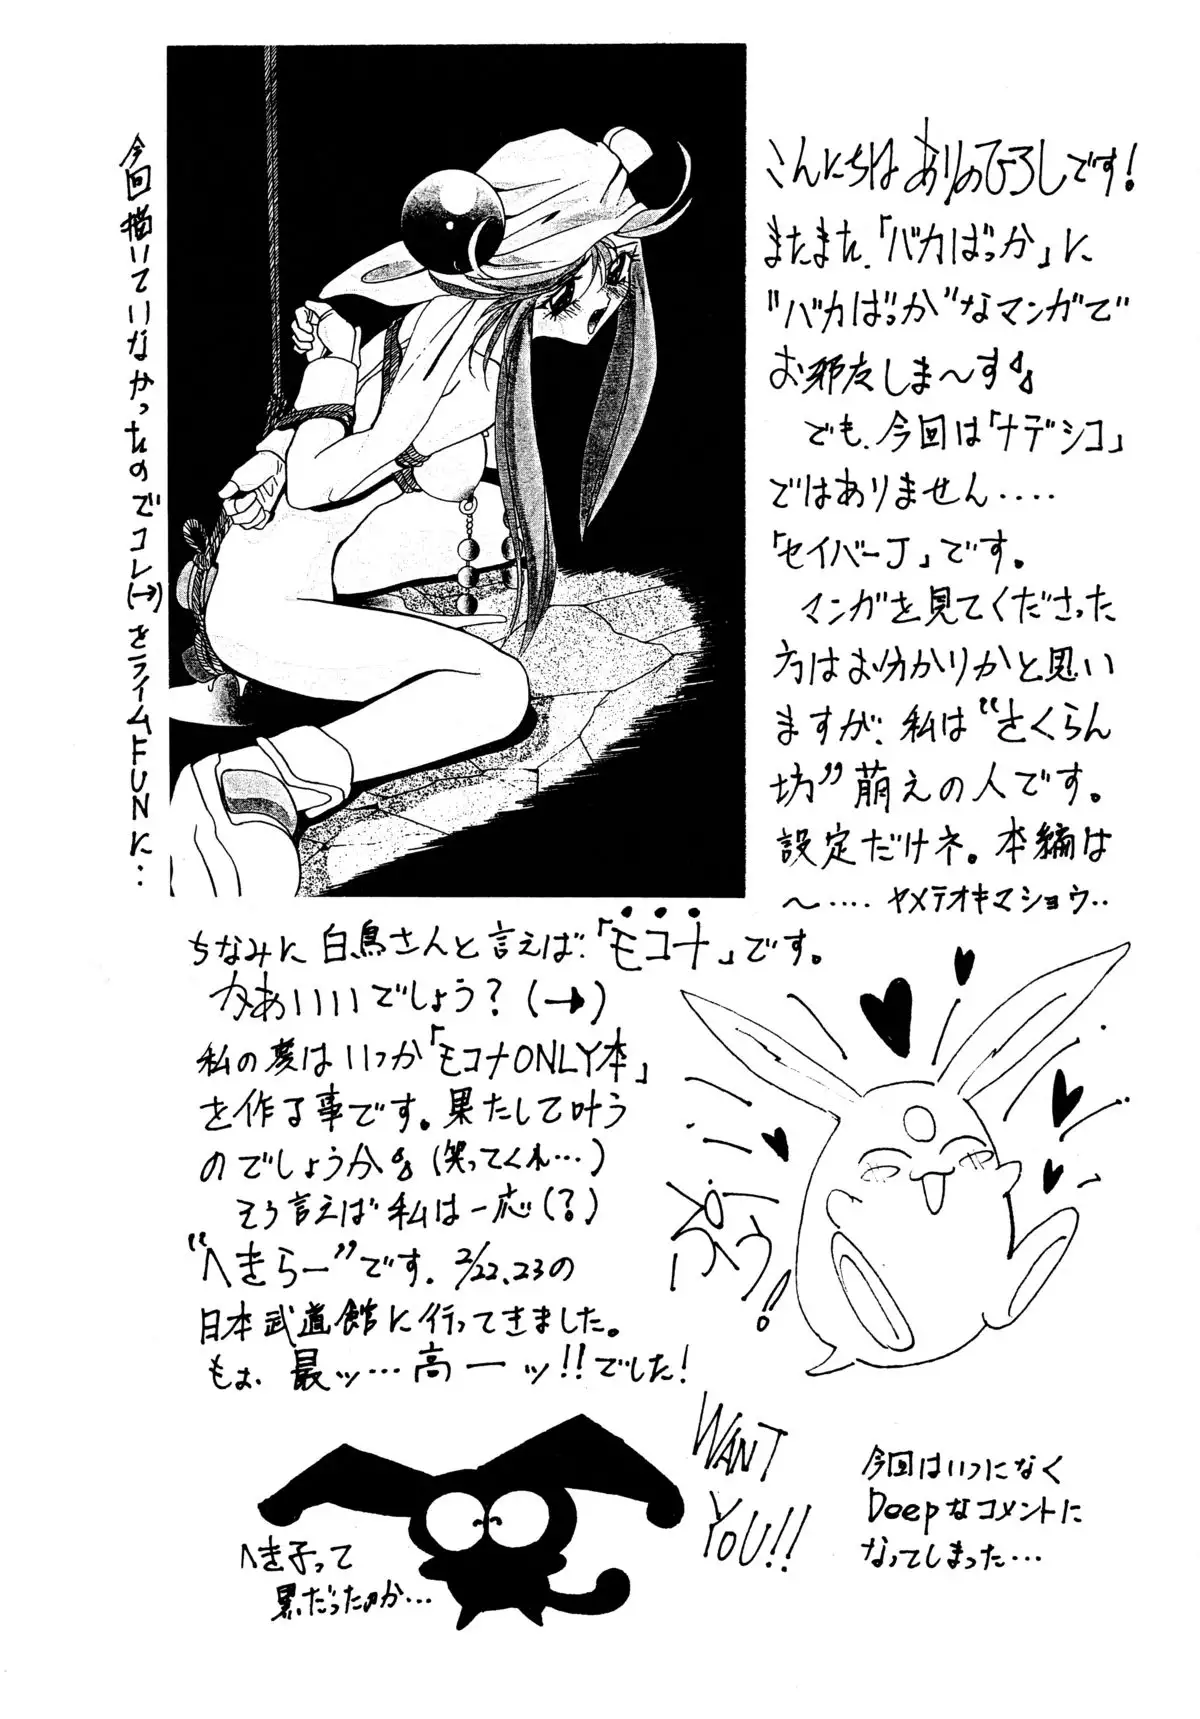 こんにちは ありのひろしです!
またまた、「バカばっか」に
"バカばっか"なマンガで
お邪友しま〜す。
でも、今回は「ナデシコ」
ではありません‥‥
「セイバーJ」です。
マンガを見てくださった
方はお分かりかと思い
ますが、私は"さくらん
坊"萌えの人です。
設定だけネ。本編は
〜‥‥ ヤメテオキマショウ‥
今回描いていなかったのでコレ(→)をライムFUNに‥
ちなみに白鳥さんと言えば、「モコナ」です。
かあいいいでしょう?(→)
私の夢はいつか「モコナONLY本」
を作る事です。果たして叶う
のでしょうか。(笑ってくれ…)
そう言えば私は一応(?)
"へきらー"です。2/22、23の
日本武道館に行ってきました。
もぉ、最ッ…高ーッ!!でした!
ぷぅ!
WANT
YOU!!
へき子って
黒だったのか…
今回はいつになく
Deepなコメントに
なってしまった…